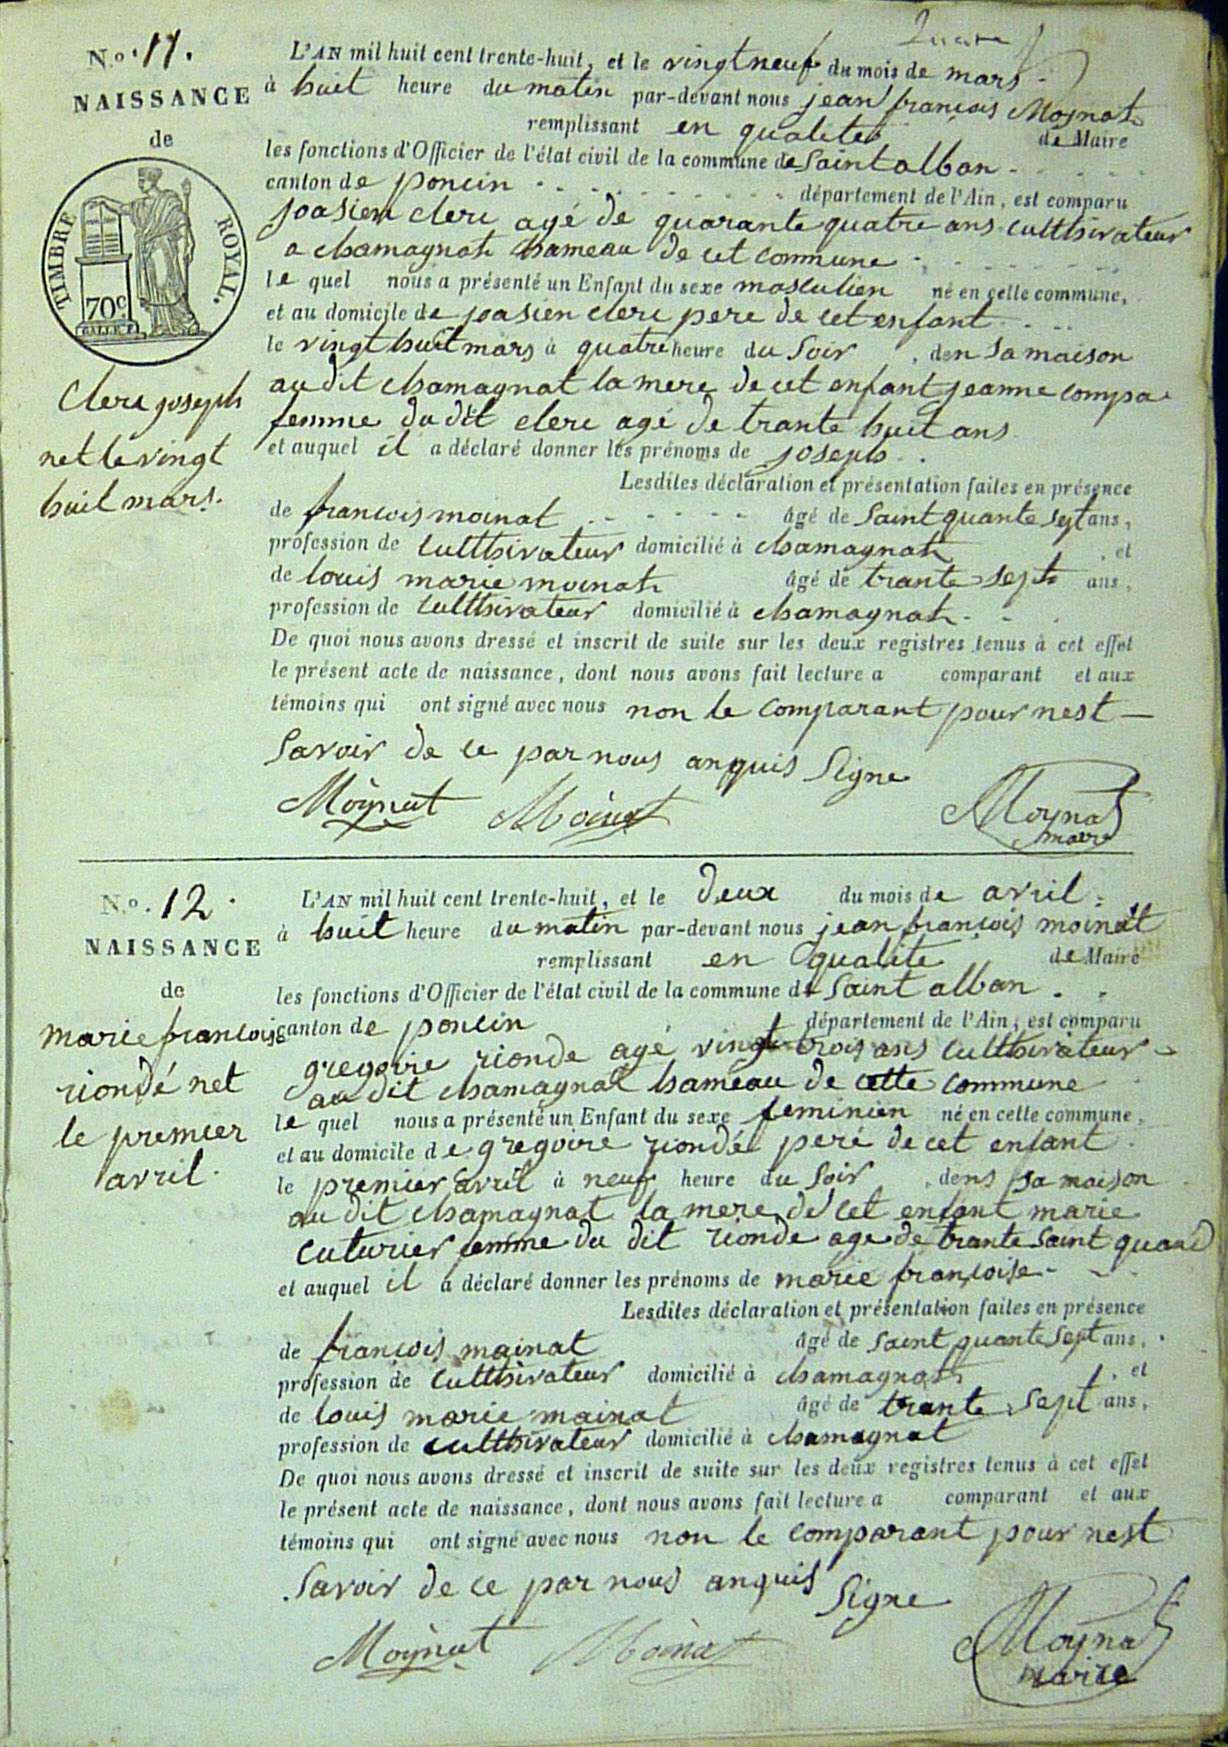 N.º 11.
NAISSANCE
de
TIMBRE ROYAL.
70c
Clerc joseph
net le vingt
huit mars.
L'AN mil huit cent trente-huit, et le vingt neuf du mois de mars
à huit heure du matin par-devant nous jean françois Moynat
remplissant en qualité de Maire
les fonctions d'Officier de l'état civil de la commune de Saint alban
canton de poncin département de l'Ain, est comparu
joasien clerc agé de quarante quatre ans culthivateur
a chamagnat hameau de cet commune
le quel nous a présenté un Enfant du sexe masculien né en cette commune,
et au domicile de joasien clerc pere de cet enfant
le vingt huit mars à quatre heure du Soir, den Sa maison
au dit chamagnat la mere de cet enfant jeanne compa
femme du dit clerc agé de trante huit ans
et auquel il a déclaré donner les prénoms de joseph
Lesdites déclaration et présentation faites en présence
de francois moinat âgé de Saint quante Sept ans,
profession de culthivateur domicilié à chamagnat, et
de louis marie moinat âgé de trante Sept ans,
profession de culthivateur domicilié à chamagnat
De quoi nous avons dressé et inscrit de suite sur les deux registres tenus à cet effet
le présent acte de naissance, dont nous avons fait lecture a comparant et aux
témoins qui ont signé avec nous non le comparant pour nest
Savoir de ce par nous anquis Signe
Moÿnat Moinat Moynat
maire
N.º 12.
NAISSANCE
de
marie françoise
riondé net
le premier
avril.
L'AN mil huit cent trente-huit, et le deux du mois de avril
à huit heure du matin par-devant nous jean françois moinat
remplissant en qualite de Maire
les fonctions d'Officier de l'état civil de la commune de Saint alban
canton de poncin département de l'Ain, est comparu
gregoire rionde agé vingt trois ans culthivateur
au dit chamagnat hameau de cette commune
le quel nous a présenté un Enfant du sexe feminien né en cette commune,
et au domicile de gregoire riondé peré de cet enfant
le premier avril à neuf heure du Soir, dens Sa maison
au dit chamagnat la mere de cet enfant marie
cuturier femme du dit rionde age de trante Saint quand
et auquel il a déclaré donner les prénoms de marie françoise
Lesdites déclaration et présentation faites en présence
de francois mainat âgé de Saint quante Sept ans,
profession de culthivateur domicilié à chamagnat, et
de louis marie mainat âgé de trante Sept ans,
profession de culthivateur domicilié à chamagnat
De quoi nous avons dressé et inscrit de suite sur les deux registres tenus à cet effet
le présent acte de naissance, dont nous avons fait lecture a comparant et aux
témoins qui ont signé avec nous non le comparant pour nest
Savoir de ce par nous anquis Signe
Moÿnat Moinat Moynat
maire